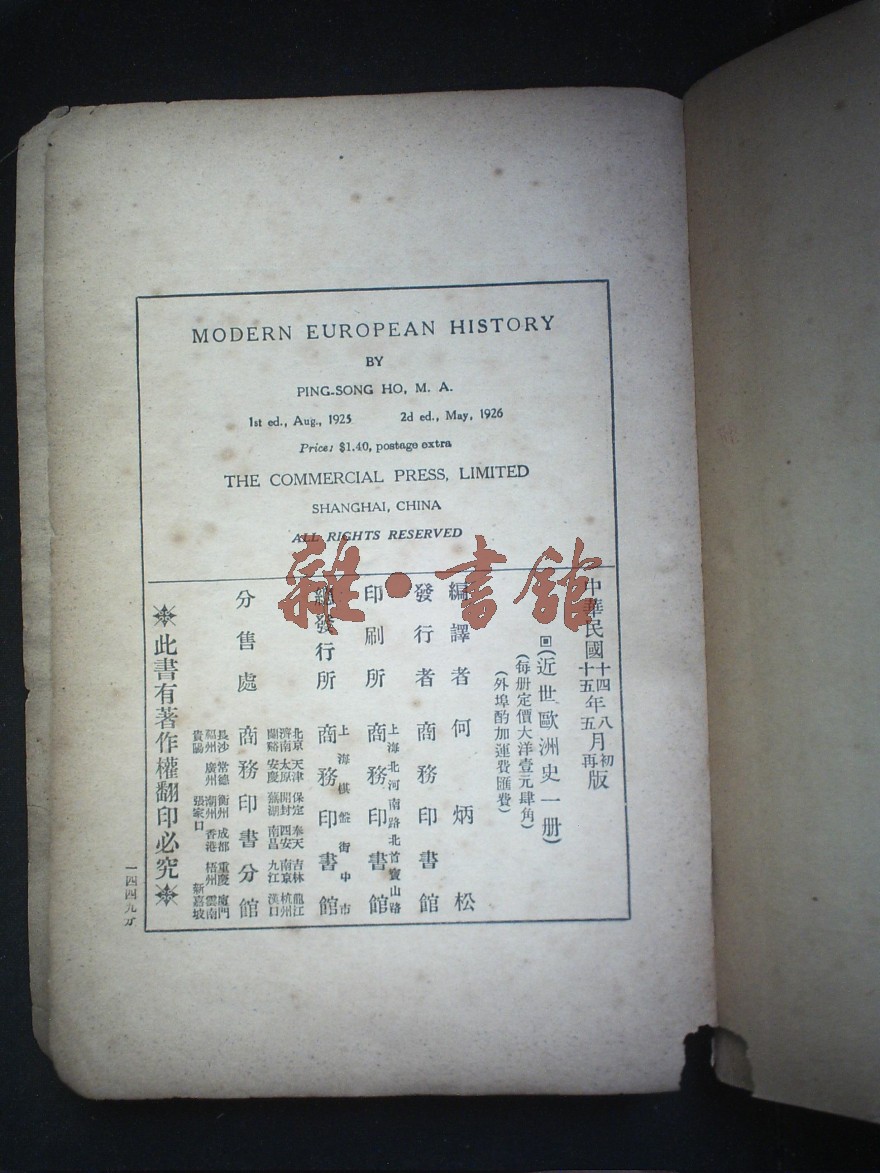 MODERN EUROPEAN HISTORY
BY
PING-SONG HO, M. A.
1st ed., Aug., 1925 2d ed., May, 1926
Price: $1.40, postage extra
THE COMMERCIAL PRESS, LIMITED
SHANGHAI, CHINA
ALL RIGHTS RESERVED
雜·書館
中華民國十四年八月初版
十五年五月再版
回(近世歐洲史一册)
(每册定價大洋壹元肆角)
(外埠酌加運費匯費)
編譯者 何炳松
發行者 商務印書館
上海北河南路北首寶山路
印刷所 商務印書館
上海棋盤街中市
總發行所 商務印書館
北京 天津 保定 奉天 吉林 龍江
濟南 太原 開封 西安 南京 杭州
蘭谿 安慶 蕪湖 南昌 九江 漢口
分售處 商務印書分館
長沙 常德 衡州 成都 重慶 廈門
福州 廣州 潮州 香港 梧州 雲南
貴陽 張家口 新嘉坡
此書有著作權翻印必究
一四四九分